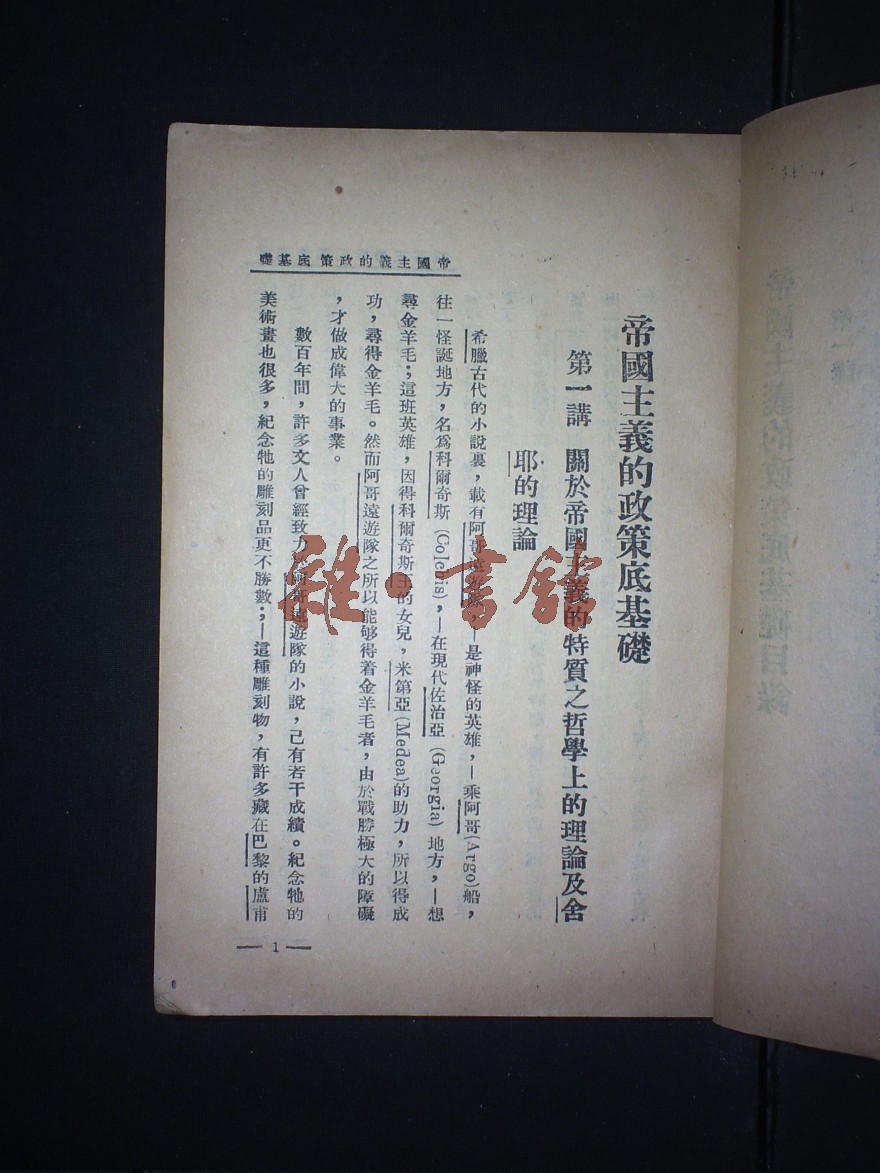 帝國主義的政策底基礎
第一講 關於帝國主義的特質之哲學上的理論及舍
耶的理論
希臘古代的小說裏，載有阿哥遠遊隊，—是神怪的英雄，—乘阿哥(Argo)船，
往一怪誕地方，名爲科爾奇斯(Colchis)，—在現代佐治亞(Georgia)地方，—想
尋金羊毛；這班英雄，因得科爾奇斯王的女兒，米第亞(Medea)的助力，所以得成
功，尋得金羊毛。然而阿哥遠遊隊之所以能够得着金羊毛者，由於戰勝極大的障礙
，才做成偉大的事業。
數百年間，許多文人曾經致力 阿哥遠遊隊的小說，己有若干成績。紀念牠的
美術畫也很多，紀念牠的雕刻品更不勝數；—這種雕刻物，有許多藏在巴黎的盧甫
帝國主義的政策底基礎
— 1 —
雜·書館